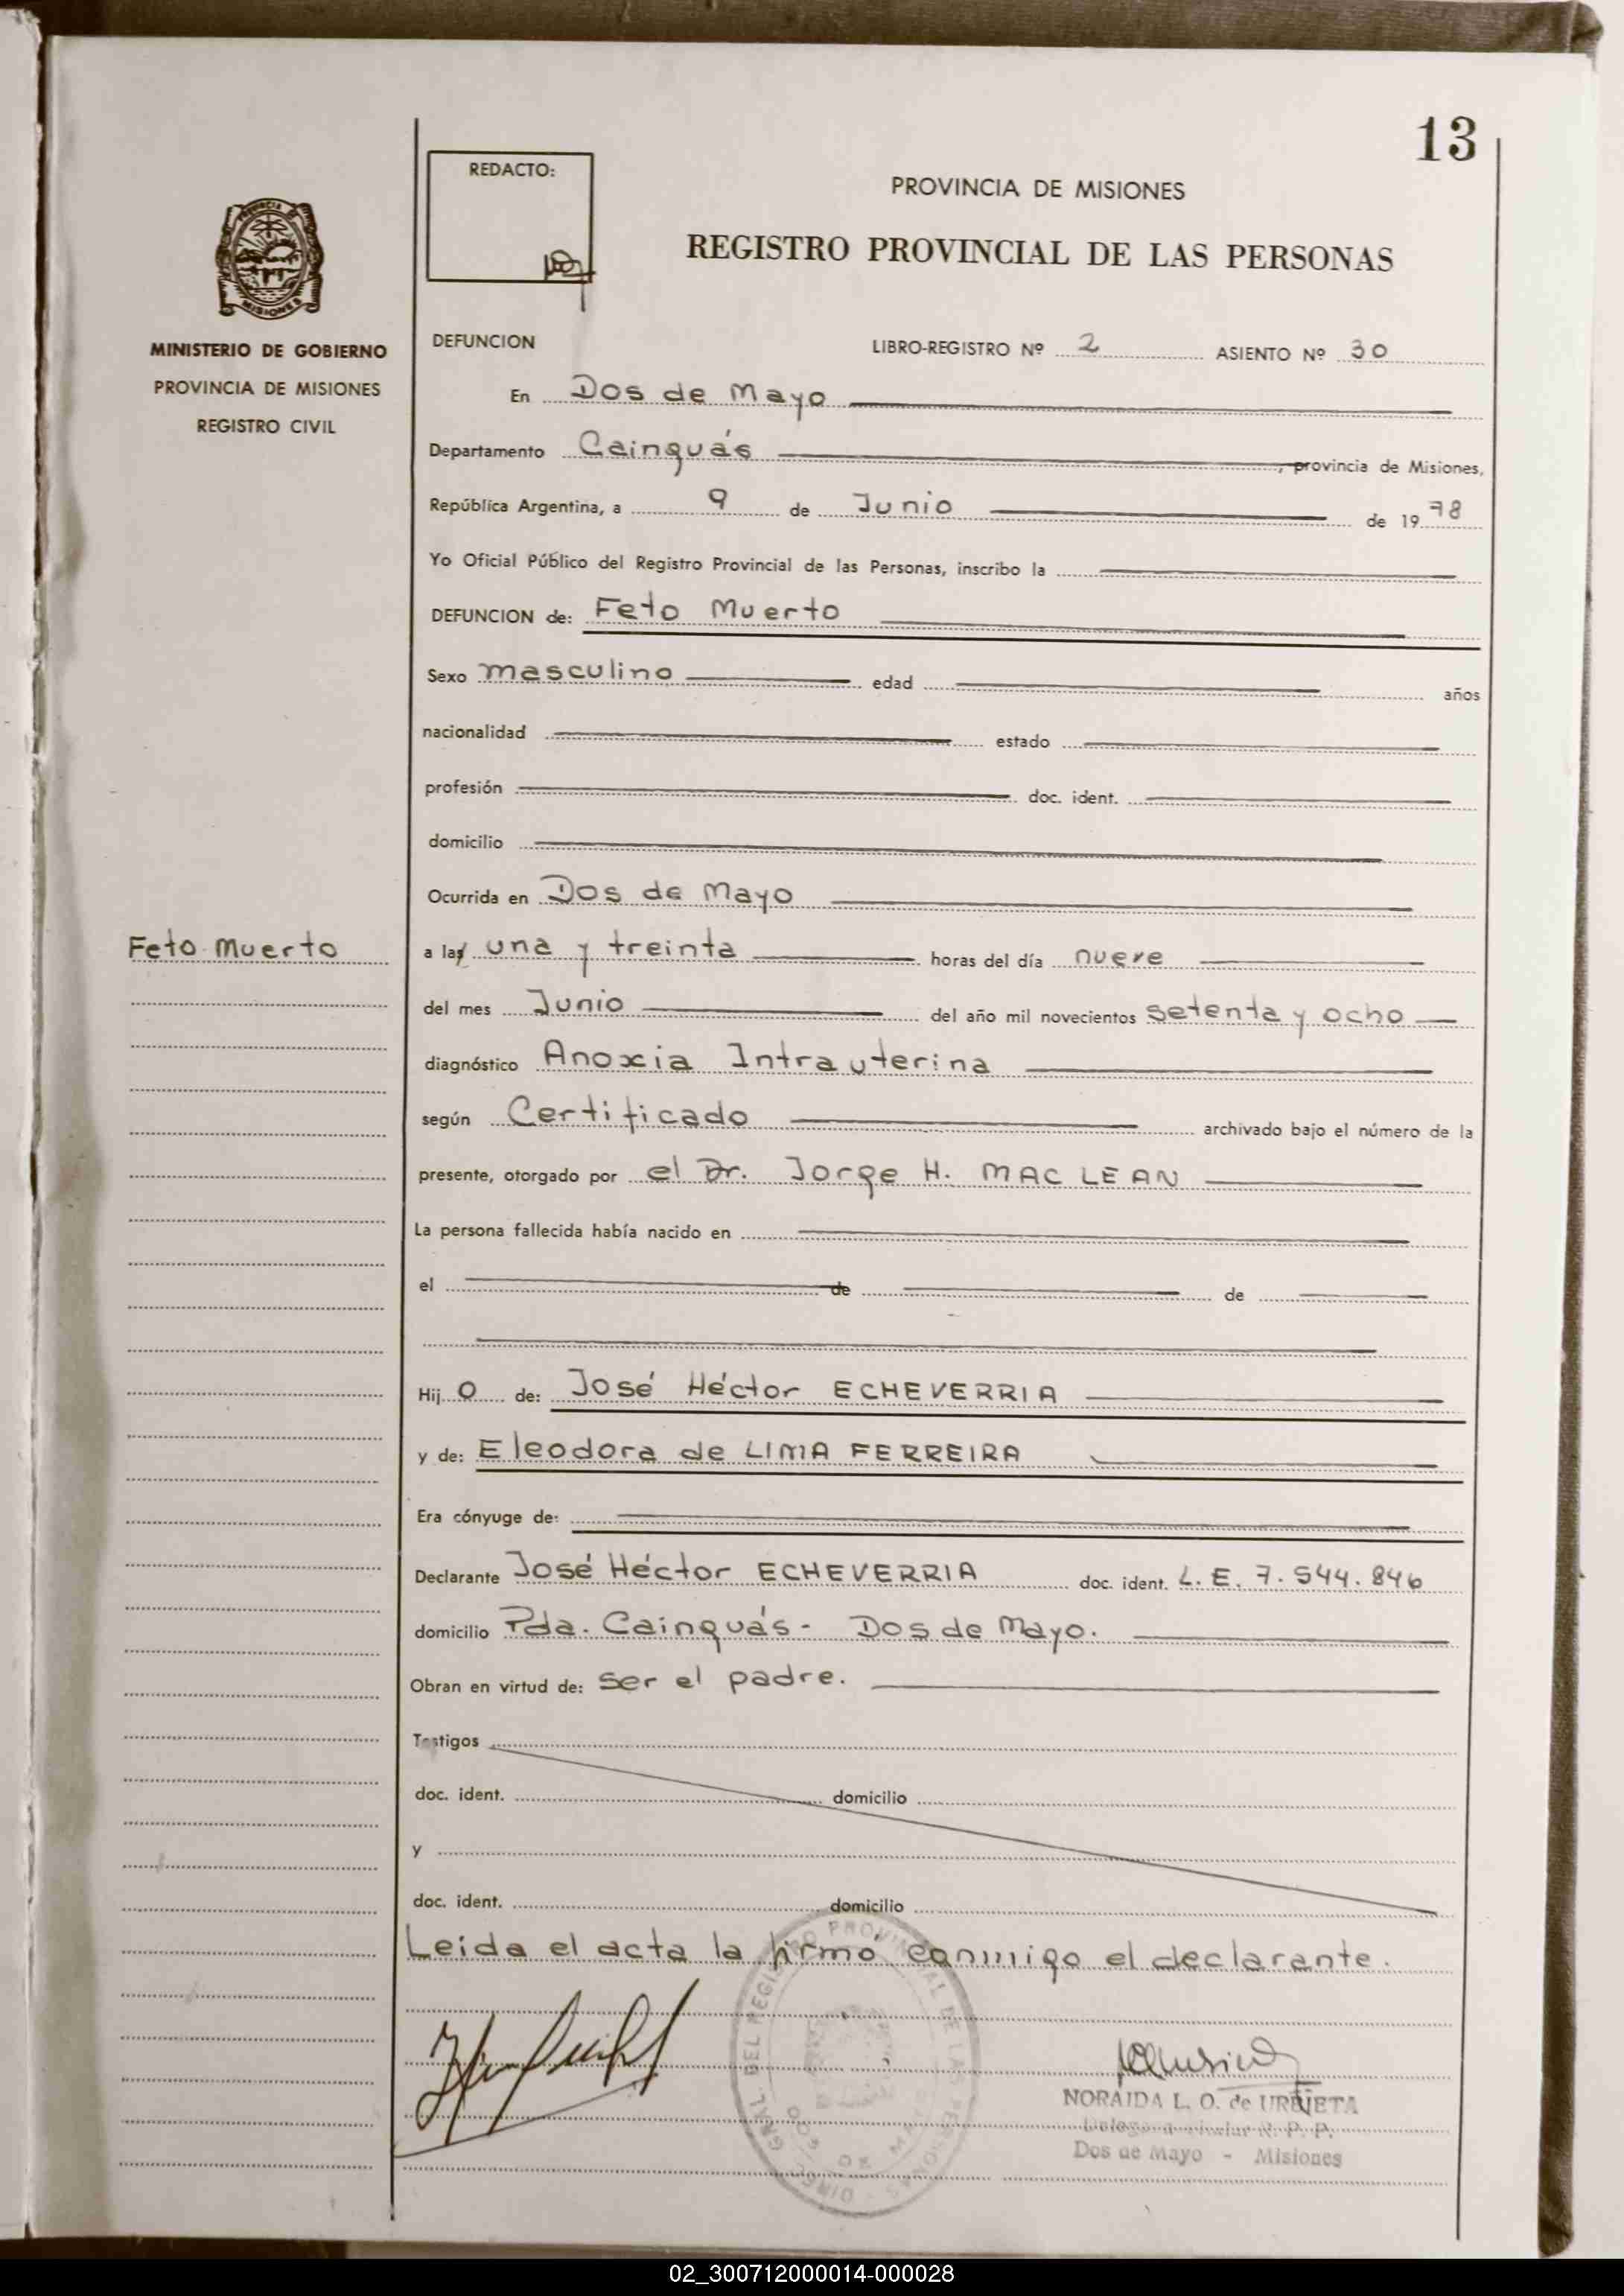 13
REDACTO:
PROVINCIA DE MISIONES
REGISTRO PROVINCIAL DE LAS PERSONAS
MINISTERIO DE GOBIERNO
PROVINCIA DE MISIONES
REGISTRO CIVIL
DEFUNCION LIBRO-REGISTRO Nº 2 ASIENTO Nº 30
En Dos de Mayo
Departamento Cainguás, provincia de Misiones,
República Argentina, a 9 de Junio de 1978
Yo Oficial Público del Registro Provincial de las Personas, inscribo la
DEFUNCION de: Feto Muerto
Sexo masculino edad años
nacionalidad estado
profesión doc. ident.
domicilio
Ocurrida en Dos de Mayo
Feto Muerto
a las una y treinta horas del día nueve
del mes Junio del año mil novecientos setenta y ocho
diagnóstico Anoxia Intrauterina
según Certificado archivado bajo el número de la
presente, otorgado por el Dr. Jorge H. MAC LEAN
La persona fallecida había nacido en
el de de
Hijo de: José Héctor ECHEVERRIA
y de: Eleodora de LIMA FERREIRA
Era cónyuge de:
Declarante José Héctor ECHEVERRIA doc. ident. L.E. 7.544.846
domicilio Pda. Cainguás - Dos de Mayo.
Obran en virtud de: ser el padre.
Testigos
doc. ident. domicilio
y
doc. ident. domicilio
Leida el acta la firmó conmigo el declarante.
NORAIDA L. O. de URRIETA
R. P. P.
Dos de Mayo - Misiones
02_300712000014-000028